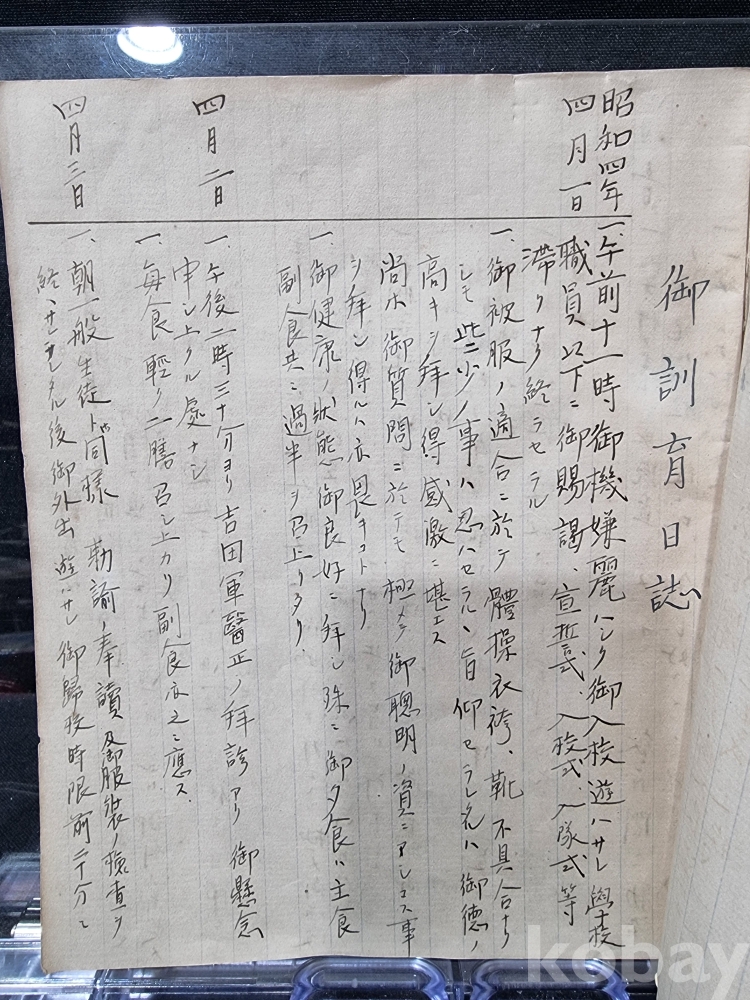 御訓育日誌
昭和四年
四月一日
一、午前十一時御機嫌麗ハシク御入校遊ハサレ學校
職員以下ニ御賜謁、宣誓式、入校式、入隊式等
滞リナク終ラセラル
一、御被服ノ適合ニ於テ體操衣袴、靴 不具合ナリ
シモ些少ノ事ハ忍ハセラルヽ旨 仰セラレタルハ 御德ノ
高キヲ拜シ得 感激ニ堪エス
尚ホ 御質問ニ於テモ 極メテ 御聰明ノ資ニアラセラルヽ事
ヲ拜シ得ルハ亦畏キコトナリ
一、御健康ノ狀態御良好ニ拜シ 殊ニ 御夕食ハ主食
副食共ニ過半ヲ召上リタリ
四月二日
一、午後二時三十分ヨリ 吉田軍醫正ノ拜診アリ 御懸念
申シ上クル處ナシ
一、每食輕ク二膳 召シ上カリ 副食亦之ニ應ス
四月三日
一、朝一般生徒ト同樣 勅諭ノ奉讀及御服裝ノ檢査ヲ
終ヘサセラレタル後御外出遊ハサレ 御歸校時限前二十分ニ
kobay